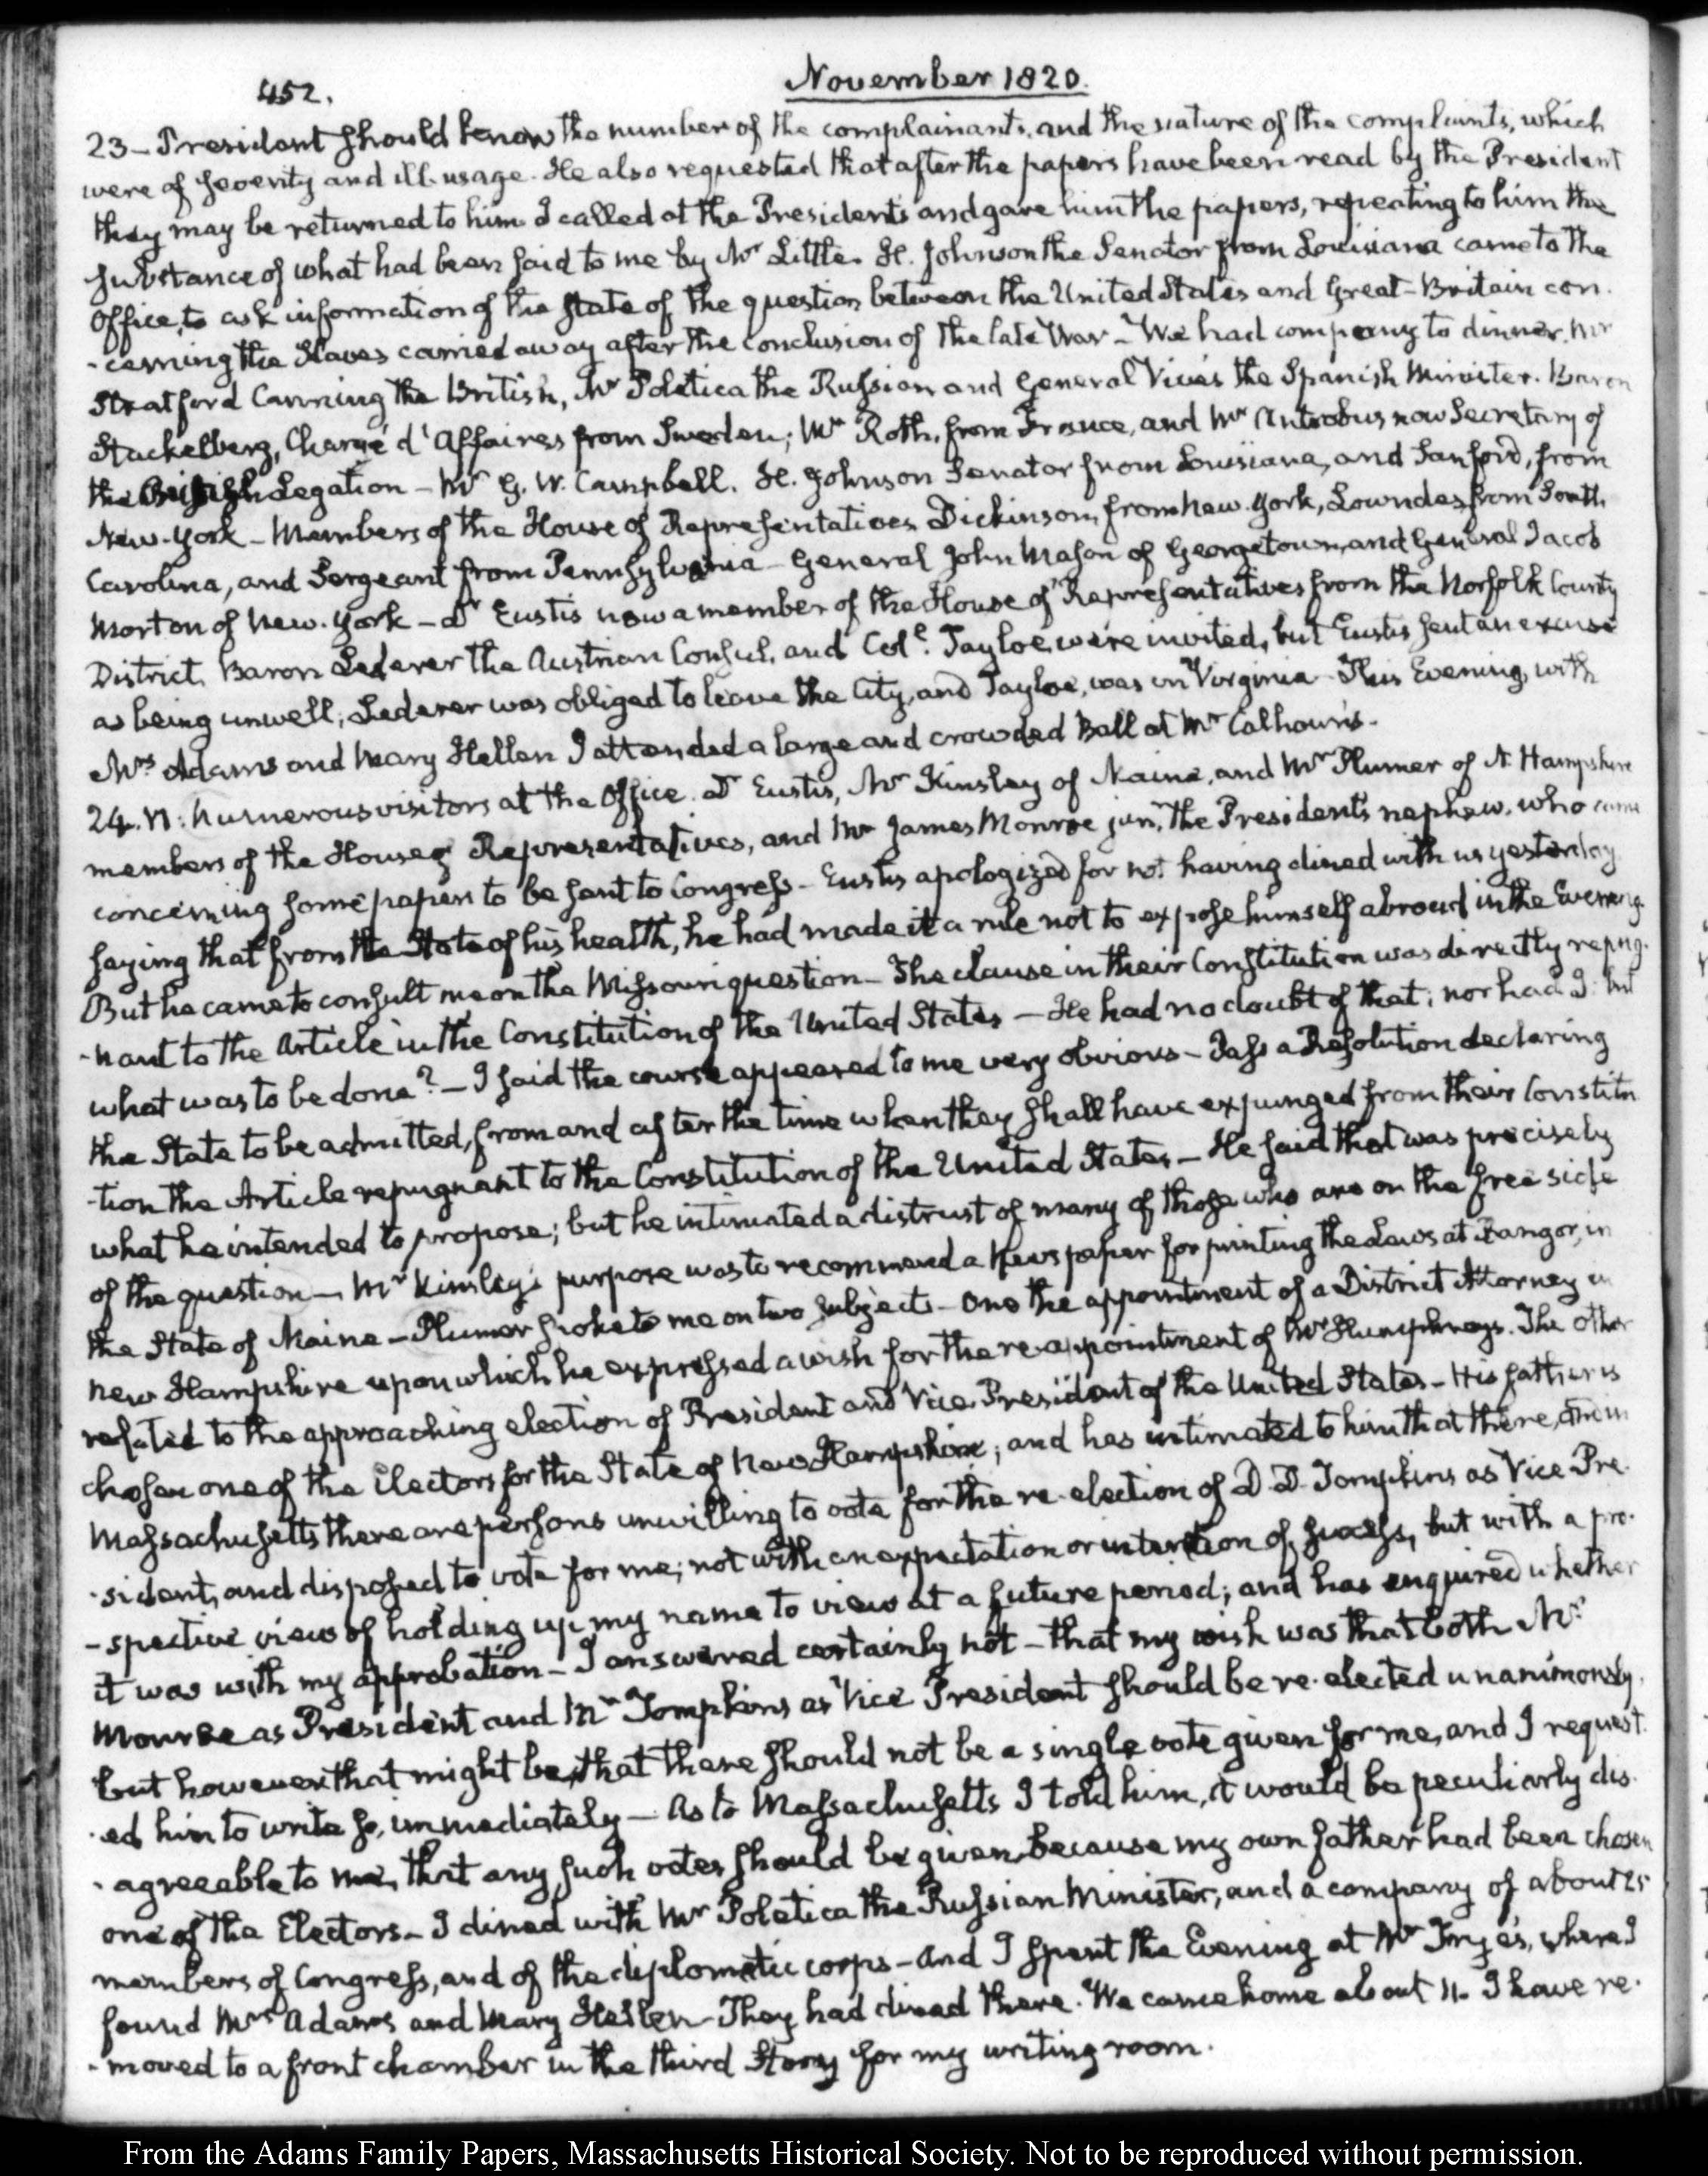 452.
November 1820.
23 – President should know the number of the complainants, and the nature of the complaints, which
were of severity and ill-usage. He also requested that after the papers have been read by the President
they may be returned to him. I called at the President's and gave him the papers, repeating to him the
substance of what had been said to me by Mr Little. H. Johnson the Senator from Louisiana came to the
Office, to ask information of the state of the question between the United States and Great-Britain con-
-cerning the Slaves carried away after the conclusion of the late War – We had company to dinner. Mr
Stratford Canning the British, Mr Poletica the Russian and General Vivés the Spanish Minister. Baron
Stackelberg, Chargé d'Affaires from Sweden; Mr Roth, from France, and Mr Antrobus now Secretary of
the British Legation – Mr G. W. Campbell. H. Johnson Senator from Louisiana, and Sanford, from
New-York – Members of the House of Representatives Dickinson, from New-York, Lowndes from South
Carolina, and Sergeant from Pennsylvania – General John Mason of Georgetown, and General Jacob
Morton of New-York – Dr Eustis now a member of the House of Representatives from the Norfolk County
District, Baron Lederer the Austrian Consul, and Col. Tayloe were invited, but Eustis sent an excuse
as being unwell, Lederer was obliged to leave the City, and Tayloe, was in Virginia. This Evening, with
Mrs Adams and Mary Hellen I attended a large and crowded Ball at Mr Calhoun's.
24. VI: Numerous visitors at the Office. Dr Eustis, Mr Kinsley of Maine, and Mr Plumer of N. Hampshire
members of the House of Representatives, and Mr James Monroe jun. the President's nephew, who came
concerning some papers to be sent to Congress – Eustis apologized for not having dined with us yesterday
saying that from the State of his health, he had made it a rule not to expose himself abroad in the Evening.
But he came to consult me on the Missouri question – The clause in their Constitution was directly repug-
-nant to the Article in the Constitution of the United States – He had no doubt of that; nor had I: but
what was to be done? – I said the course appeared to me very obvious – Pass a Resolution declaring
the State to be admitted, from and after the time when they shall have expunged from their Constitu-
-tion the Article repugnant to the Constitution of the United States – He said that was precisely
what he intended to propose; but he intimated a distrust of many of those who are on the free side
of the question – Mr Kinsley's purpose was to recommend a Newspaper for printing the Laws at Bangor, in
the State of Maine – Plumer spoke to me on two subjects – One the appointment of a District Attorney in
New Hampshire upon which he expressed a wish for the re-appointment of Mr Humphreys. The other
related to the approaching election of President and Vice-President of the United States – His father is
chosen one of the Electors for the State of New Hampshire; and has intimated to him that there, and in
Massachusetts there are persons unwilling to vote for the re-election of D. D. Tompkins as Vice Pre-
-sident, and disposed to vote for me; not with an expectation or intention of success, but with a pro-
-spective view of holding up my name to view at a future period; and has enquired whether
it was with my approbation – I answered certainly not – that my wish was that both Mr
Monroe as President and Mr Tompkins as Vice President should be re-elected unanimously,
but however that might be, that there should not be a single vote given for me, and I request-
-ed him to write so, immediately – As to Massachusetts I told him, it would be peculiarly dis-
-agreeable to me, that any such votes should be given, because my own father had been chosen
one of the Electors – I dined with Mr Poletica the Russian Minister, and a company of about 25
members of Congress, and of the diplomatic corps – And I spent the Evening at Mr Frye's, where I
found Mrs Adams and Mary Hellen – They had dined there. We came home about 11. I have re-
-moved to a front chamber in the third Story for my writing room.
From the Adams Family Papers, Massachusetts Historical Society. Not to be reproduced without permission.